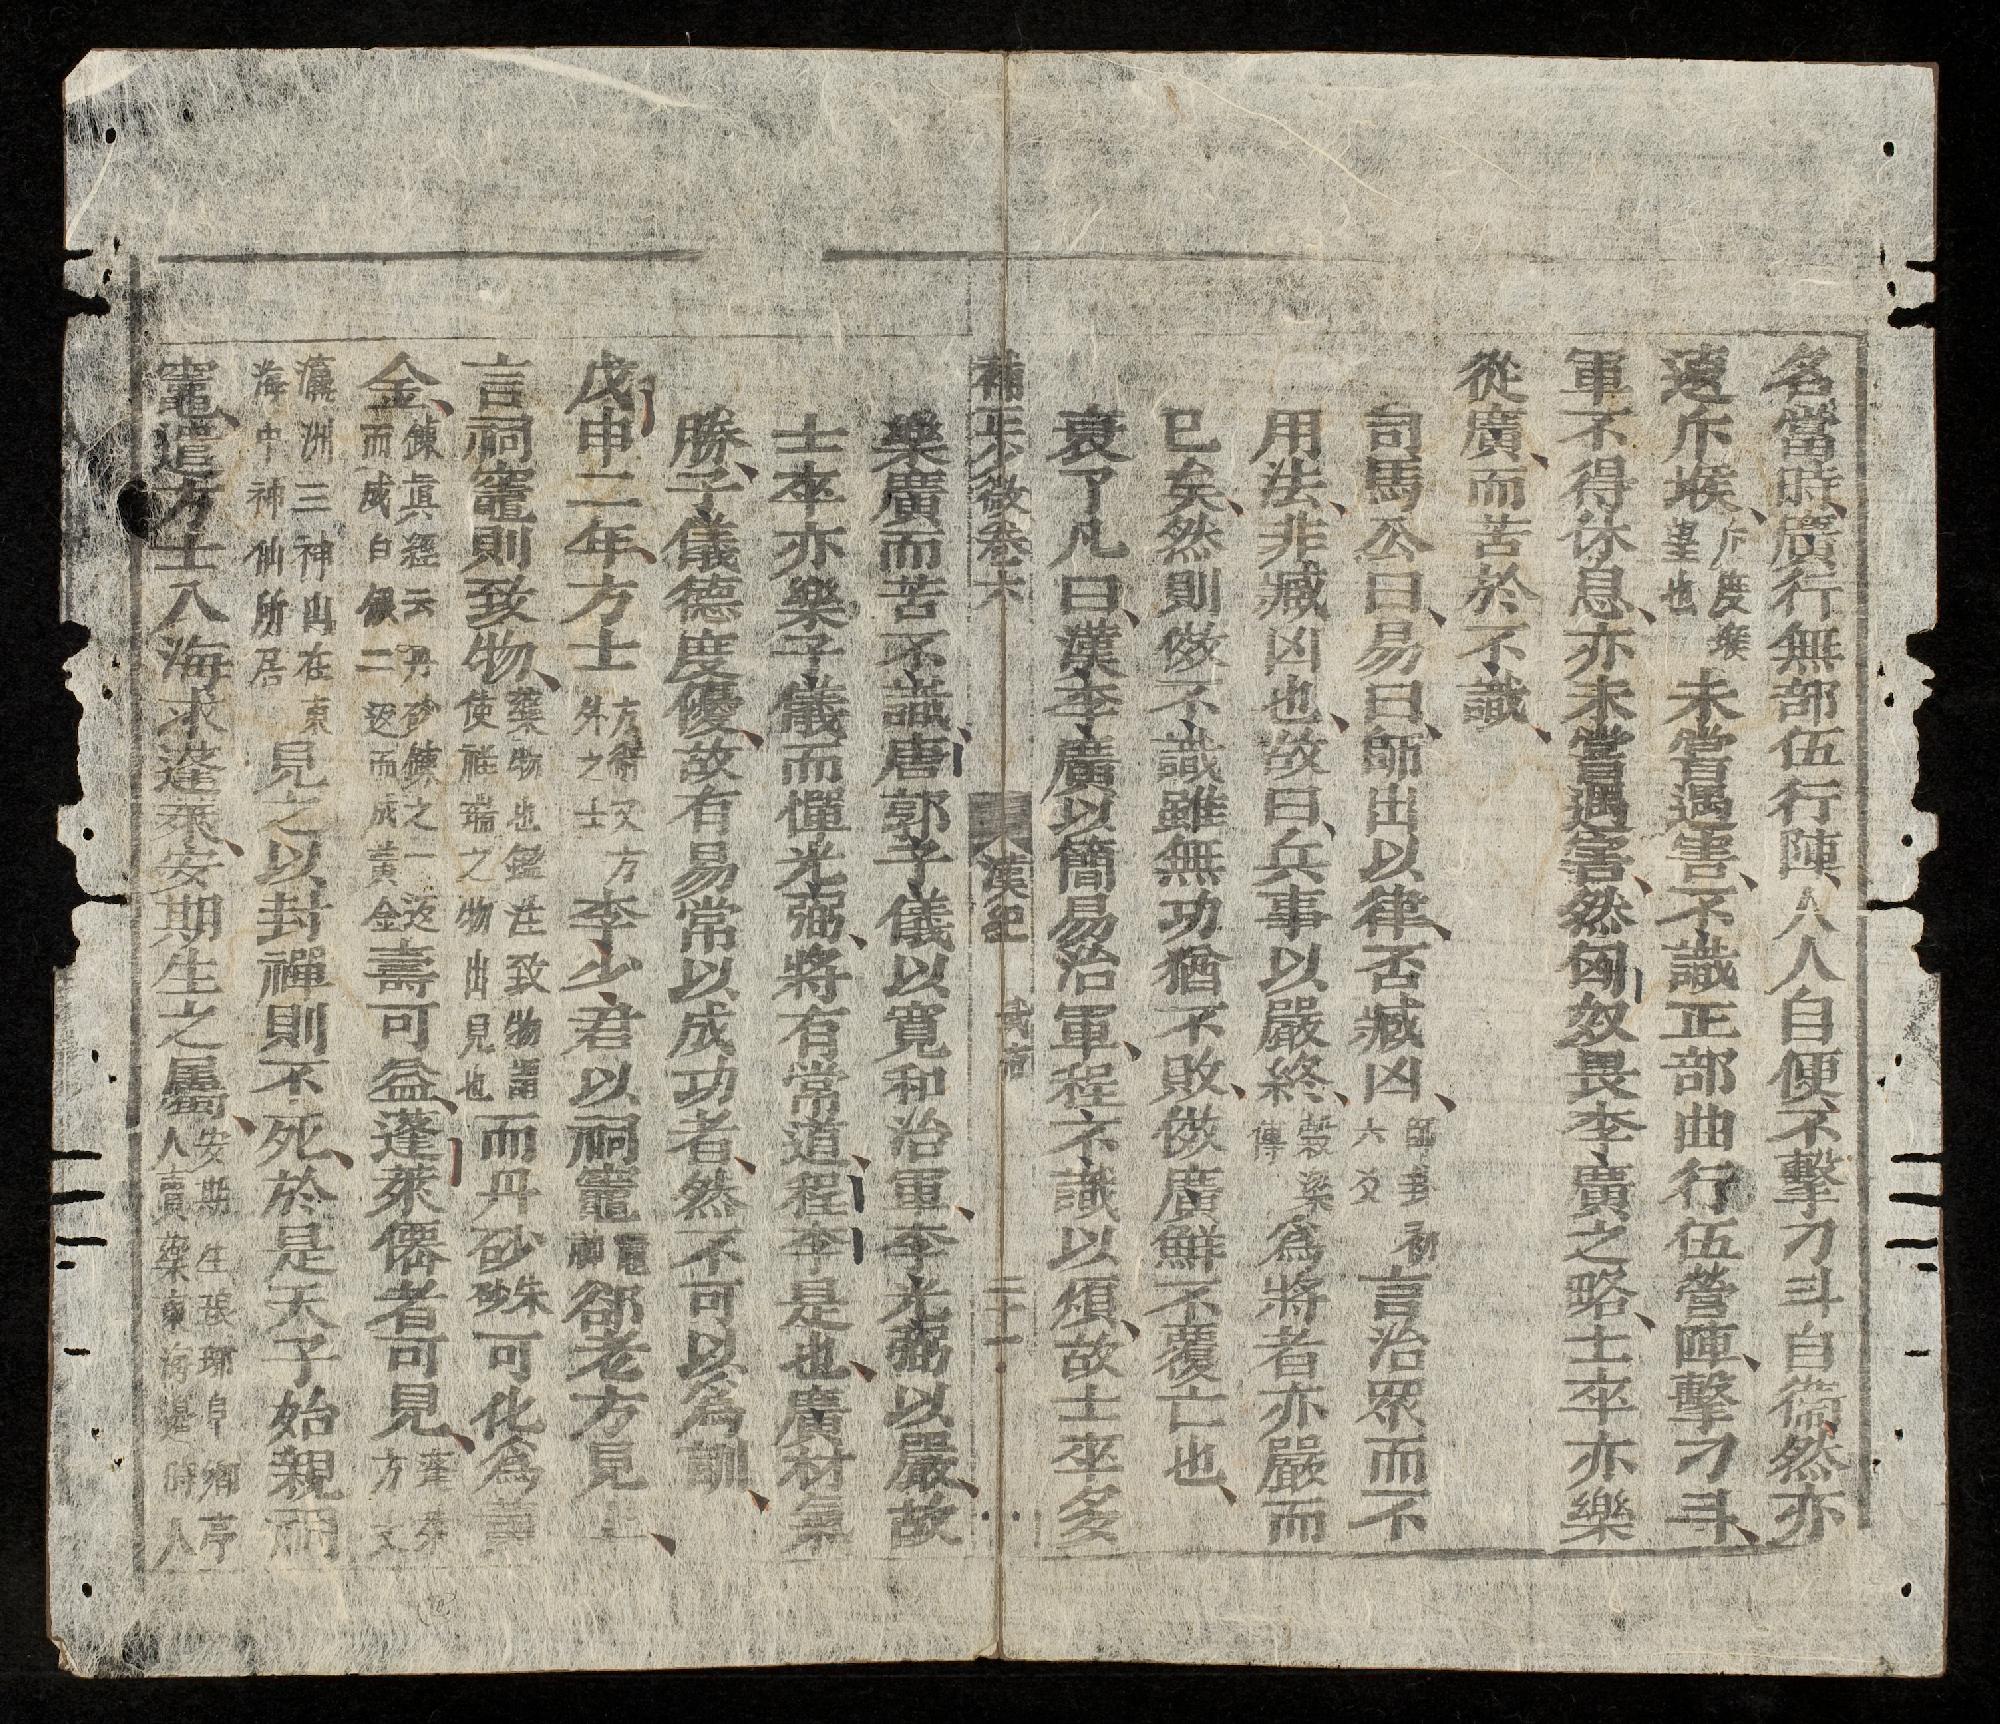 名當時廣行無部伍行陣人人自便不擊刁斗自衞然亦
遠斥堠斥度堠望也未嘗遇害不識正部曲行伍營陣擊刁斗
軍不得休息亦未嘗遇害然匈奴畏李廣之略士卒亦樂
從廣而苦於不識
司馬公曰易曰師出以律否臧凶師卦初六爻言治眾而不
用法非臧凶也故曰兵事以嚴終穀梁傳為將者亦嚴而
已矣然則倣不識雖無功猶不敗倣廣鮮不覆亡也
袁了凡曰漢李廣以簡易治軍程不識以煩故士卒多
補正少微卷六 漢紀 武帝 二十一
樂廣而苦不識唐郭子儀以寬和治軍李光弼以嚴故
士卒亦樂子儀而憚光弼將有常道程李是也廣材氣
勝子儀德度優故有易常以成功者然不可以為訓
戊申二年方士方術又方外之士李少君以祠竈竈神卻老方見上
言祠竈則致物藥物也鑑注致物謂使祥瑞之物出見也而丹砂朱砂可化為黃
金鍊真經云丹砂鍊之一返而成白銀二返而成黃金壽可益蓬萊僊者可見蓬萊方丈
瀛洲三神山在東海中神仙所居見之以封禪則不死於是天子始親祠
竈遣方士入海求蓬萊安期生之屬安期生琅琊阜鄉亭人賣藥東海邊時人